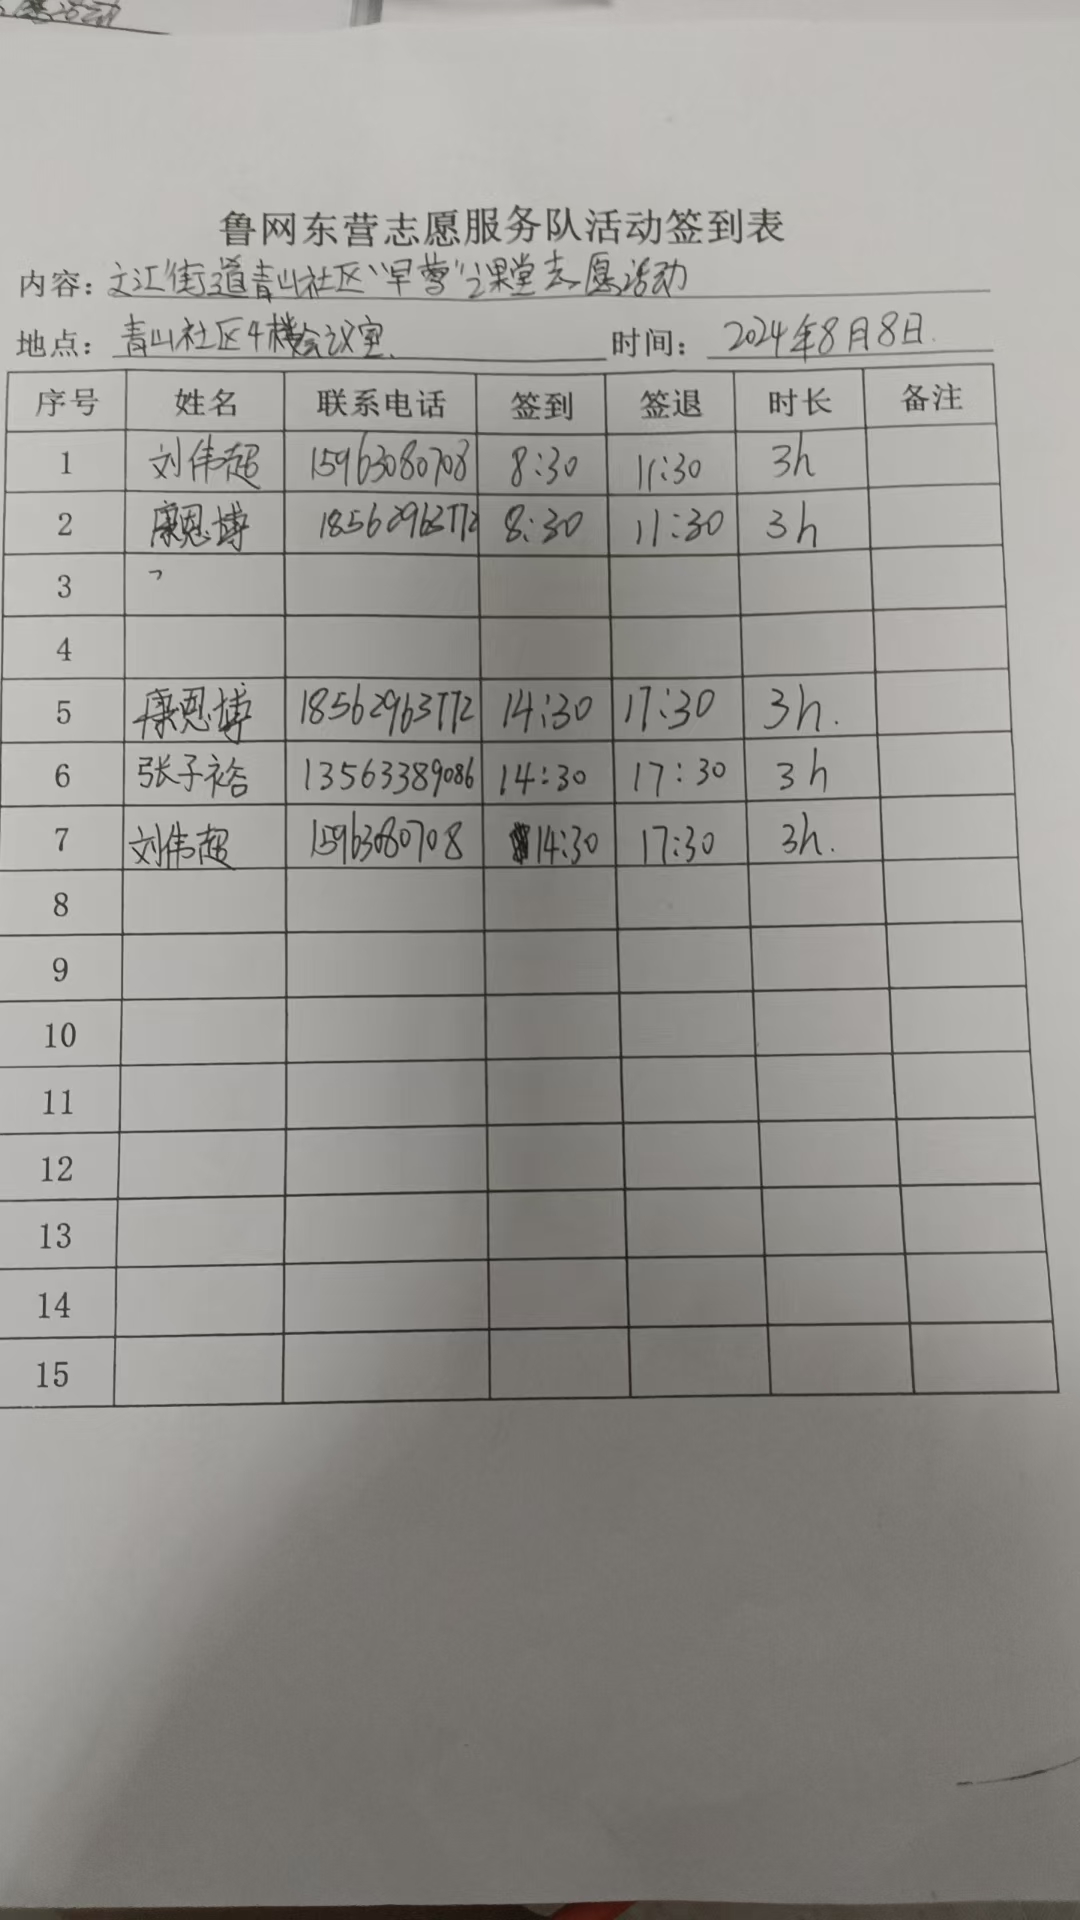 活动
鲁网东营志愿服务队活动签到表
内容：文汇街道青山社区“早营”课堂志愿活动
地点：青山社区4楼会议室. 时间：2024年8月8日.
序号 姓名 联系电话 签到 签退 时长 备注
1 刘伟超 15963080708 8:30 11:30 3h
2 康恩博 18562963772 8:30 11:30 3h
3
4
5 康恩博 18562963772 14:30 17:30 3h.
6 张子裕 13563389086 14:30 17:30 3h
7 刘伟超 15963080708 14:30 17:30 3h.
8
9
10
11
12
13
14
15